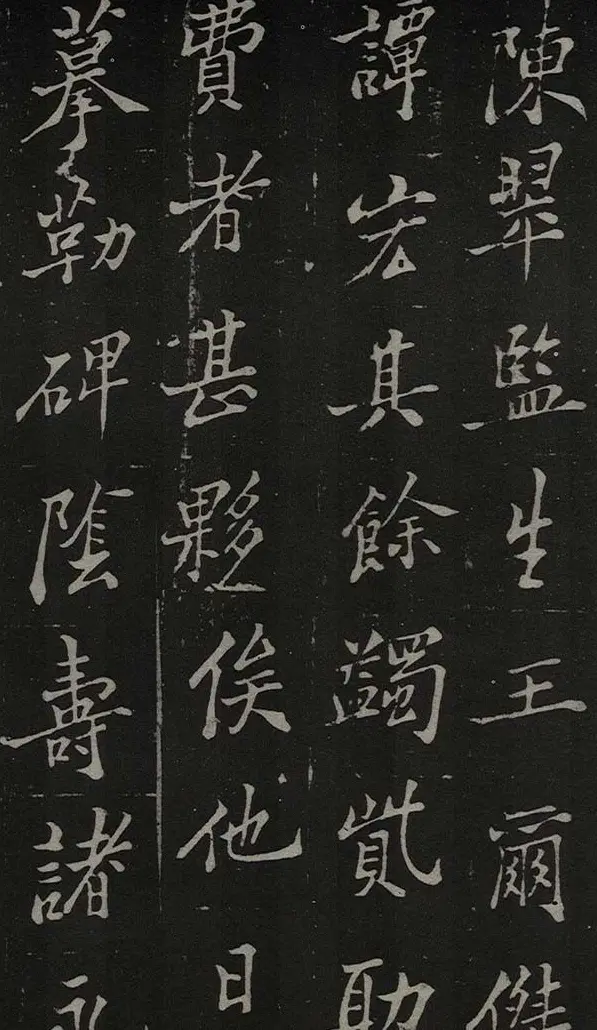 陳翠監生王爾傑
譚宏其餘蠲貲助
費者甚夥俟他日
摹勒碑陰壽諸永